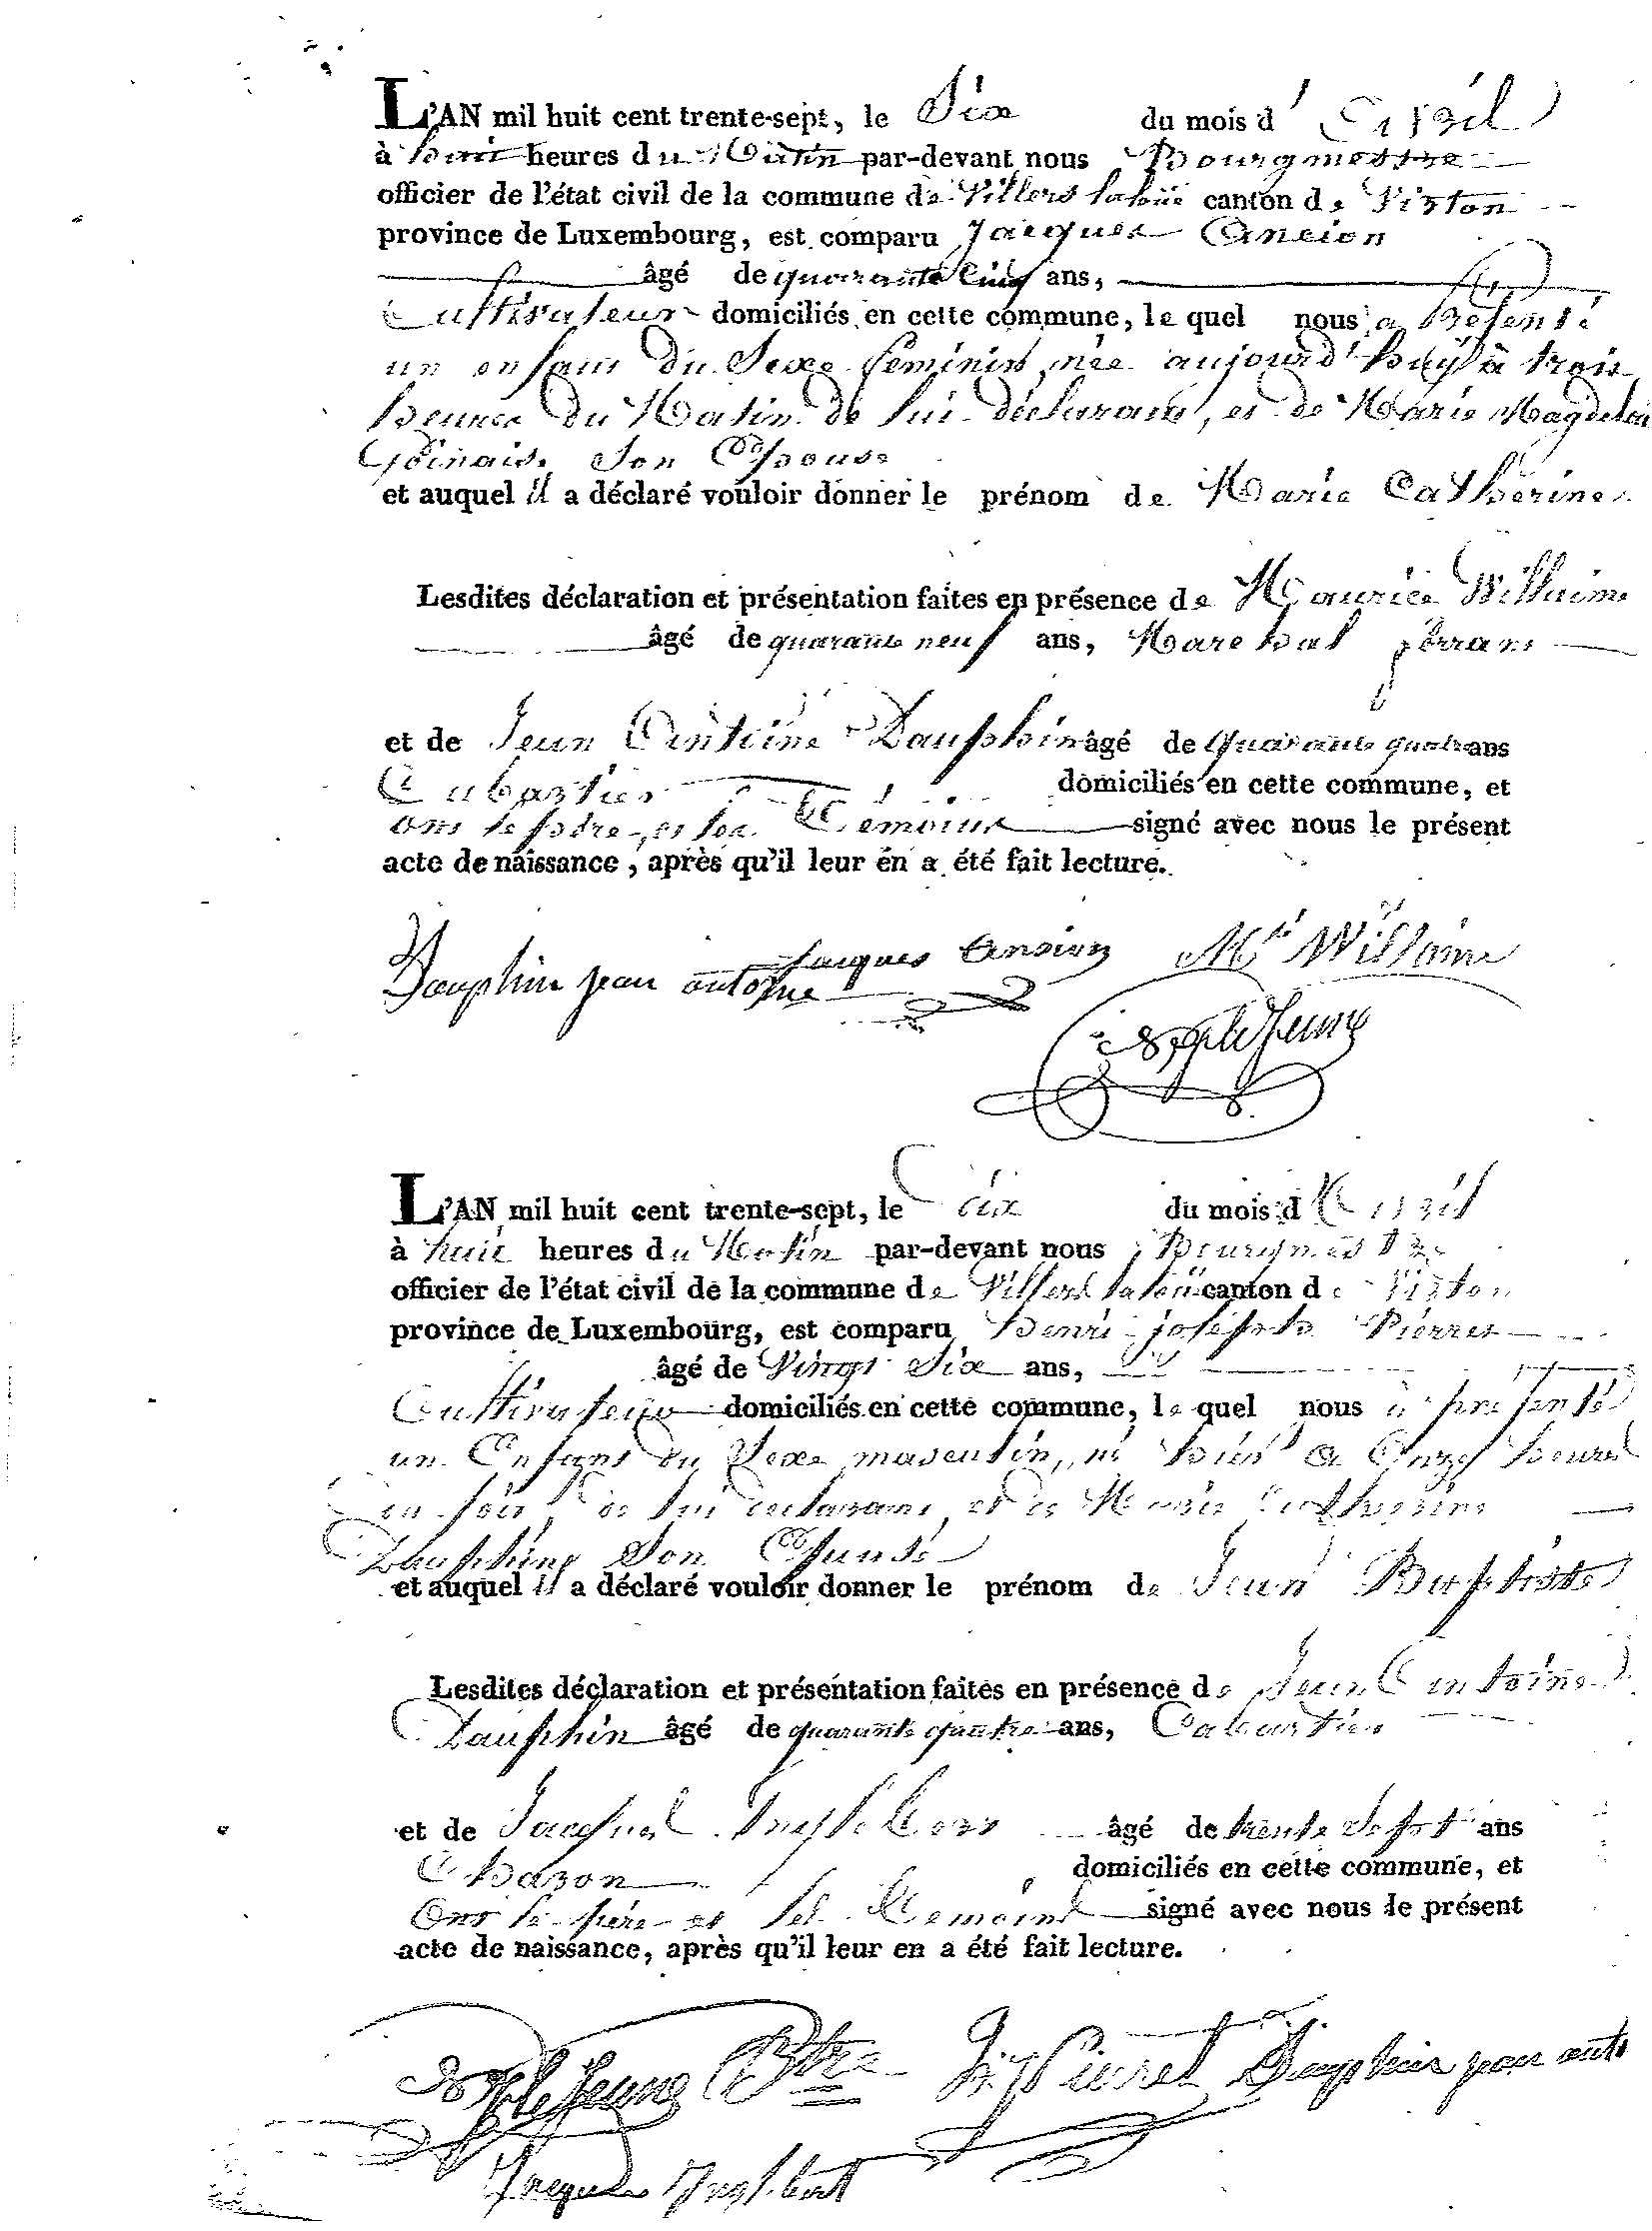 L'AN mil huit cent trente-sept, le Six du mois d'Avril
à huit heures du Matin par-devant nous Bourgmestre
officier de l'état civil de la commune de Villers laloüe canton de Virton
province de Luxembourg, est comparu Jacques Ancion
âgé de quarante Cinq ans,
Cultivateur domiciliés en cette commune, le quel nous a présenté
un enfant du Sexe feminin née aujourd'huÿ à trois
heures du Matin de lui déclarant, et de Marie Magdelai
son Epouse
et auquel il a déclaré vouloir donner le prénom de Marie Catherine
Lesdites déclaration et présentation faites en présence de Maurice Willaime
âgé de quarante neuf ans, Marechal ferrant
et de Jean Antoine Dauphin âgé de quarante quatre ans
Cabartier domiciliés en cette commune, et
ont le père et les Témoins signé avec nous le présent
acte de naissance, après qu'il leur en a été fait lecture.
Jacques Ancion Mce Willaime
Dauphin jean antoine
Lejeune
L'AN mil huit cent trente-sept, le Six du mois d'Avril
à huit heures du Matin par-devant nous Bourgmestre
officier de l'état civil de la commune de Villers laloü canton de Virton
province de Luxembourg, est comparu Henri joseph Pierret
âgé de Vingt Six ans,
Cultivateur domiciliés en cette commune, le quel nous a présenté
un Enfant du Sexe masculin, né hier à Onze heures
du soir, de lui declarant et de Marie Catherine
Dauphine Son Epouse
et auquel il a déclaré vouloir donner le prénom de Jean Baptiste
Lesdites déclaration et présentation faites en présence de Jean Antoine
Dauphin âgé de quarante quatre ans, Cabartier
et de Jacques âgé de trente Sept ans
Charon domiciliés en cette commune, et
Ont le père et les Témoins signé avec nous le présent
acte de naissance, après qu'il leur en a été fait lecture.
Lejeune Btre Pierret Dauphin jean ant
Jacques